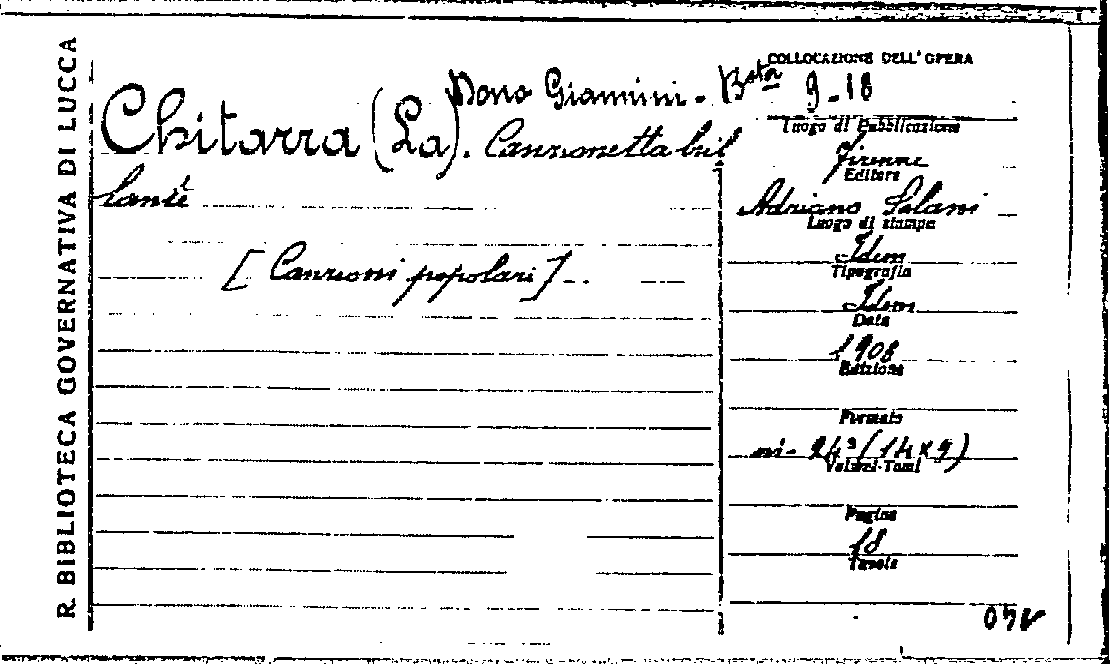 R. BIBLIOTECA GOVERNATIVA DI LUCCA
Dono Giannini - Bsta 9-18
COLLOCAZIONE DELL'OPERA
Chitarra (La). Canzonetta bril
lante
[Canzoni popolari]
Luogo di Pubblicazione
Firenze
Editore
Adriano Salani
Luogo di stampa
Idem
Tipografia
Idem
Data
1908
Edizione
Formato
in-24° (14x9)
Volumi-Tomi
Pagine
18
Tavole